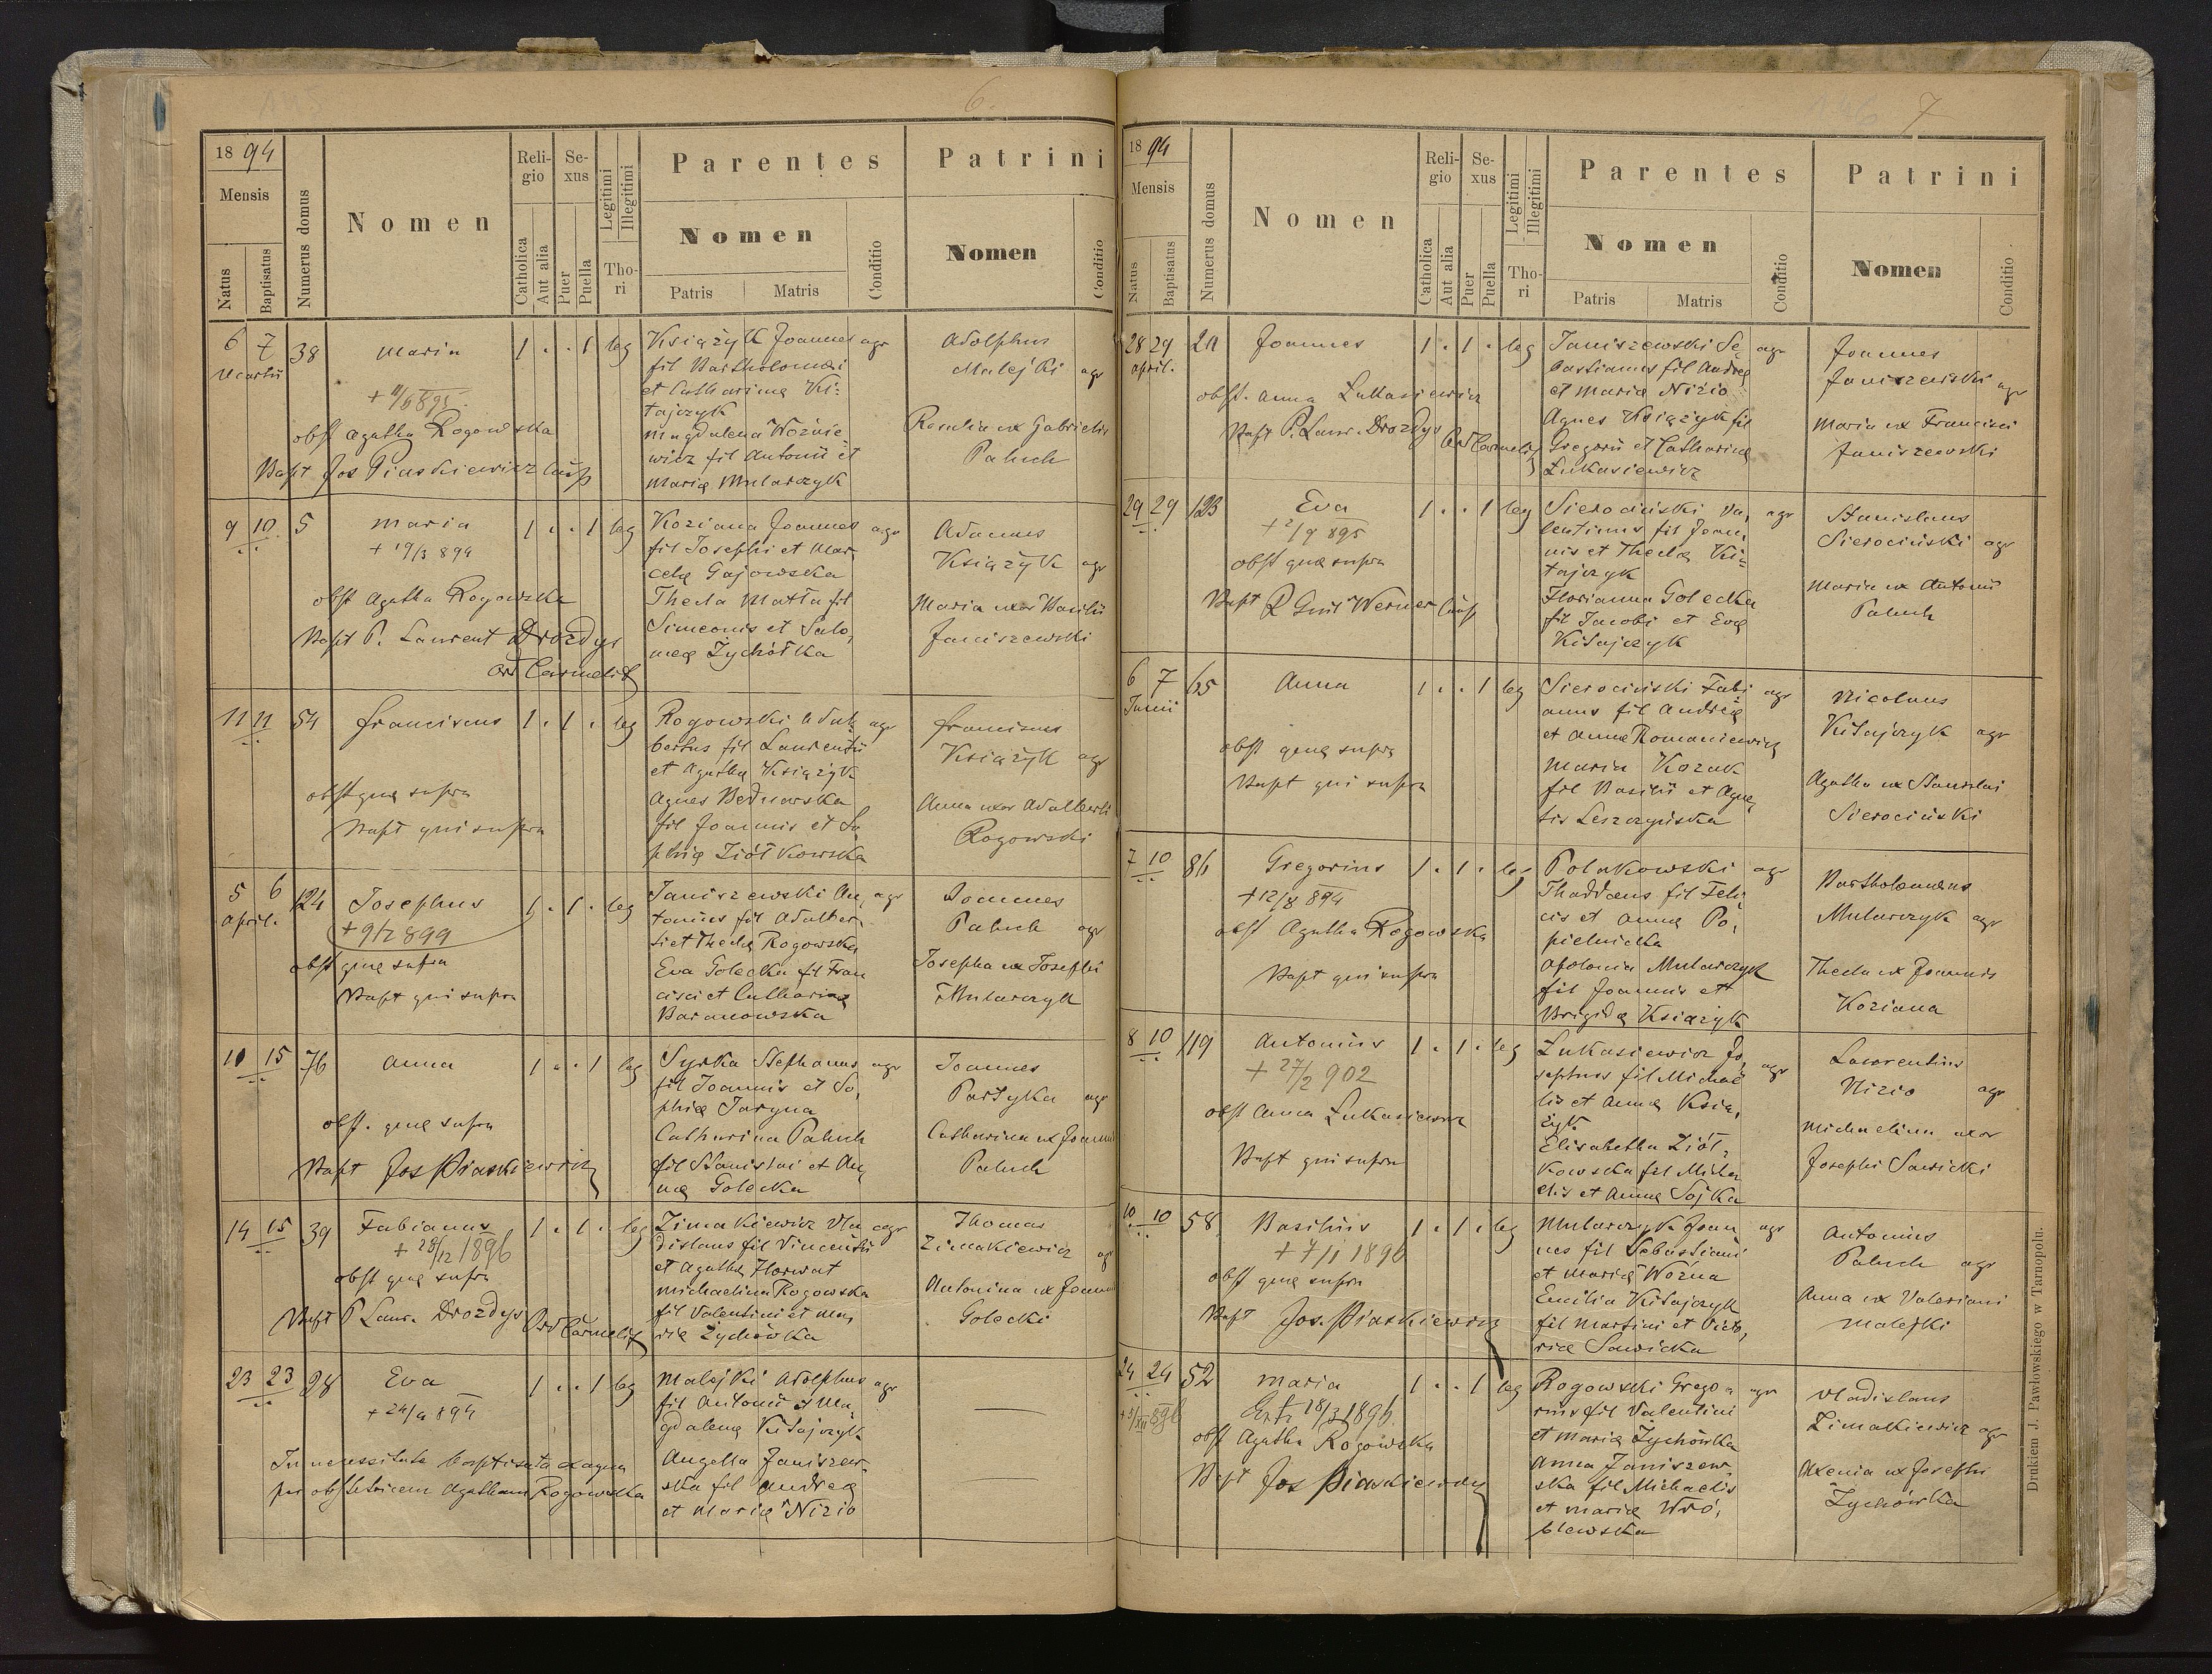 6.
1894
Mensis
Natus
Baptisatus
Numerus domus
Nomen
Religio
Catholica
Aut alia
Sexus
Puer
Puella
Legitimi
Illegitimi
Thori
Parentes
Nomen
Patris
Matris
Conditio
Patrini
Nomen
Conditio
6 7 38 Maria 1 . . 1 leg
Martii
obst Agatha Rogowska
Bapt Jos Piaskiewicz
Książyk Joannes agr
fil Bartholomæi
et Catharinæ Ki-
tajczyk
Magdalena Woźnie
wicz fil Antonii et
Mariæ Mularczyk
Adolphus
Malejki agr
Rosalia ux Gabrielis
Paluch
9 10 5 Maria 1 . . 1 leg
+ 19/3 894
obst Agatha Rogowska
Bapt P. Laurent Drozdys
Ord Carmelit
Koziana Joannes agr
fil Josephi et Mar
celæ Gajowska
Thecla Matła fil
Simeonis et Salo,
meæ Zychótka
Adamus
Książyk agr
Maria uxor Basilii
Janiszewski
11 11 54 Franciscus 1 . 1 . leg
obst quæ supra
Bapt qui supra
Rogowski Adal agr
bertus fil Laurentii
et Agatha Książyk
Agnes Bednarska
fil Joannis et So
phiæ Ziółkowska
Franciscus
Książyk agr
Anna uxor Adalberti
Rogowski
5 6 124 Josephus 1 . 1 . leg
April.
+ 9/2 899
obst quæ supra
Bapt qui supra
Janiszewski An, agr
tonius fil Adalber
ti et Theclæ Rogowska,
Eva Golecka fil Fran
cisci et Catharinæ
Baranowska
Joannes
Paluch agr
Josepha ux Josephi
Mularczyk
10 15 76 Anna 1 . . 1 leg
obst. quæ supra
Bapt Jos Piaskiewicz
Syrka Stephanus agr
fil Joannis et So,
phiæ Jaryna
Catharina Paluch
fil Stanislai et An
næ Golecka
Joannes
Partyka agr
Catharina ux Joann
Paluch
14 15 39 Fabianus 1 . 1 . leg
+ 28/12 1896
obst quæ supra
Bapt P Laur. Drozdys Ord Carmelit
Zimakiewicz Vla agr
dislaus fil Vincentii
et Agatha Horwat
Michaelina Rogowska
fil Valentini et Ma,
riæ Zychówka
Thomas
Zimakiewicz agr
Antonina ux Joann
Golecki
23 23 28 Eva 1 . . 1 leg
+ 24/4 894
In necessitate baptisata ex aqua
per obstetricem Agatham Rogowska
Malejki Adolphus agr
fil Antonii et Ma,
gdalenæ Kitajczyk
Angella Janiszew-
ska fil Andreæ
et Mariæ Nizio
7
1894
Mensis
Natus
Baptisatus
Numerus domus
Nomen
Religio
Catholica
Aut alia
Sexus
Puer
Puella
Legitimi
Illegitimi
Thori
Parentes
Nomen
Patris
Matris
Conditio
Patrini
Nomen
Conditio
28 29 Joannes 1 . 1 . leg
April.
obst. Anna Lukasiewicz
Bapt P. Laur. Drozdys Ord Carmelit
Janiszewski Se agr
bastianus fil Andreæ
et Mariæ Nizio
Agnes Książyk fil
Gregorii et Catharinæ
Lukasiewicz
Joannes
Janiszewski agr
Maria ux Francisci
Janiszewski
29 29 123 Eva 1 . . 1 leg
obst quæ supra
Bapt R Guil Werner
Sierociński Va, agr
lentinus fil Joan,
nis et Theclæ Ki-
tajczyk
Florianna Golecka
fil Jacobi et Evæ
Kitajczyk
Stanislaus
Sierociński agr
Maria ux Antonii
Paluch
6 7 65 Anna 1 . . 1 leg
Junii
obst quæ supra
Bapt qui supra
Sierociński Fabi agr
anus fil Andreæ
et Annæ Romaniewicz
Maria Kozak
fil Basilii et Agne,
tis Leszczyńska
Nicolaus
Kitajczyk agr
Agatha ux Stanislai
Sierociński
7 10 86 Gregorius 1 . 1 . leg
+ 12/8 894
obst Agatha Rogowska
Bapt qui supra
Polakowski agr
Thaddæus fil Feli
cis et Annæ Po,
pielnicka
Apolonia Mularczyk
fil Joannis et
Brigidæ Książyk
Bartholomæus
Mularczyk agr
Thecla ux Joannis
Koziana
8 10 119 Antonius 1 . 1 . leg
+ 27/2 902
obst Anna Lukasiewicz
Bapt qui supra
Lukasiewicz Jo, agr
sephus fil Michaë
lis et Annæ Ksią,
żyk
Elisabetha Ziół-
kowska fil Micha
elis et Annæ Sojka
Laurentius
Nizio agr
Michaelina uxor
Josephi Sawicki
10 10 58 Basilius 1 . 1 . leg
+ 7/1 1896
obst quæ supra
Bapt Jos. Piaskiewicz
Mularczyk Joan agr
nes fil Sebastiani
et Mariæ Woźna
Emilia Kitajczyk
fil Martini et Victo,
riæ Sawicka
Antonius
Paluch agr
Anna ux Valeriani
Malejki
24 24 52 Maria 1 . . 1 leg
obst Agatha Rogowska
Bapt Jos Piaskiewicz
Rogowski Grego agr
rius fil Valentini
et Mariæ Zychówka
Anna Janiszew-
ska fil Michaelis
et Mariæ Wró,
blewska
Vladislaus
Zimakiewicz agr
Axenia ux Josephi
Zychówka
Drukiem J. Pawłowskiego w Tarnopolu.